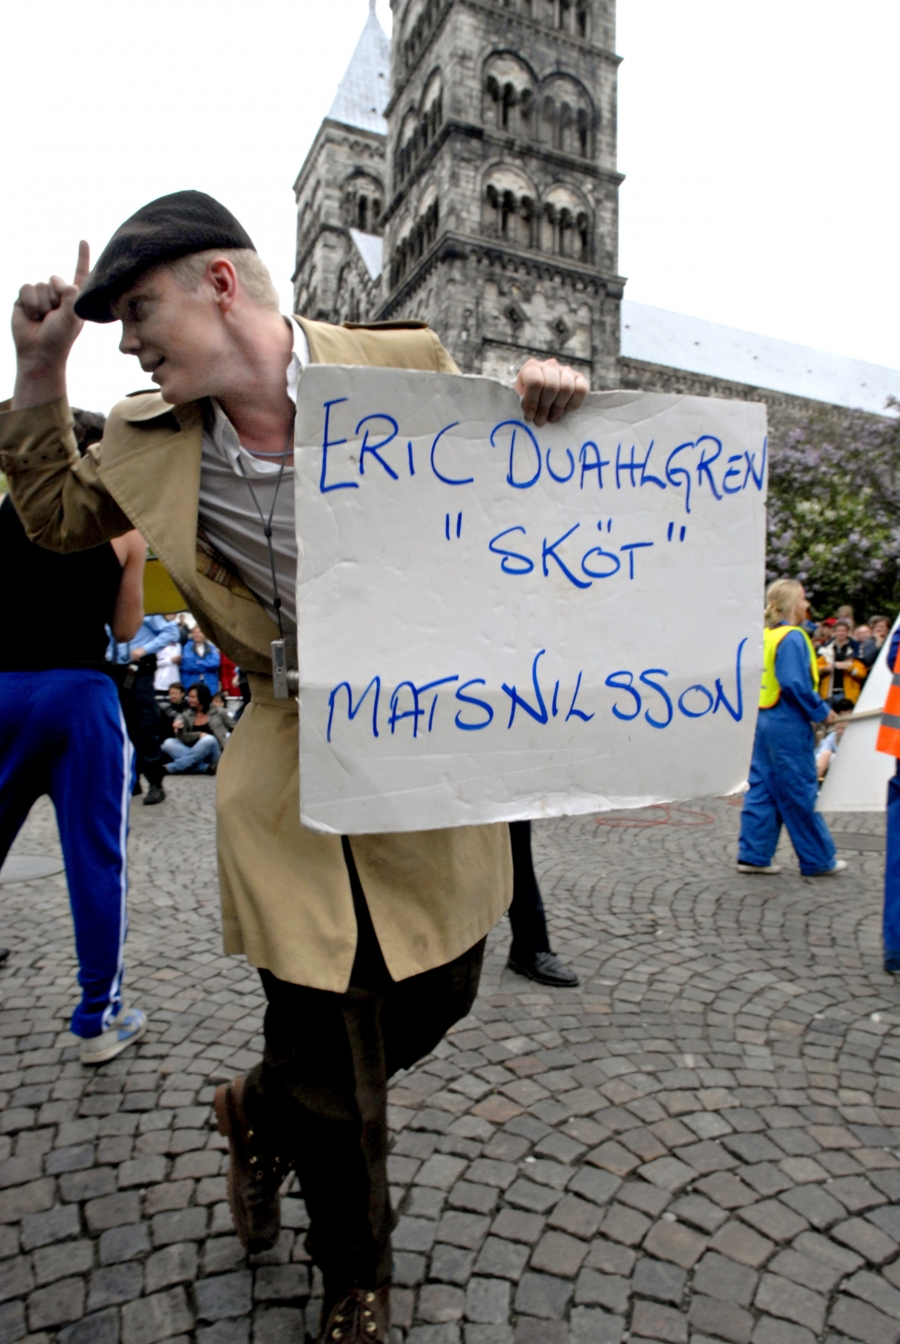 ERIC DUAHLGREN
"SKÖT"
MATS NILSSON